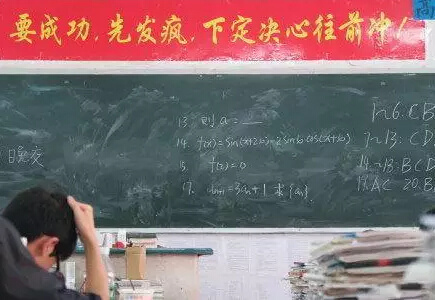 要成功，先发疯，下定决心往前冲！
13. 则a=__
14. f(x)=sin(x+2φ)-2sinφcos(x+φ)
15. f(x)=0
17. an+1=3an+1 求{an}
晚交
1~6.CB
7~13:CD
14~18:BCD
19.AC 20.B